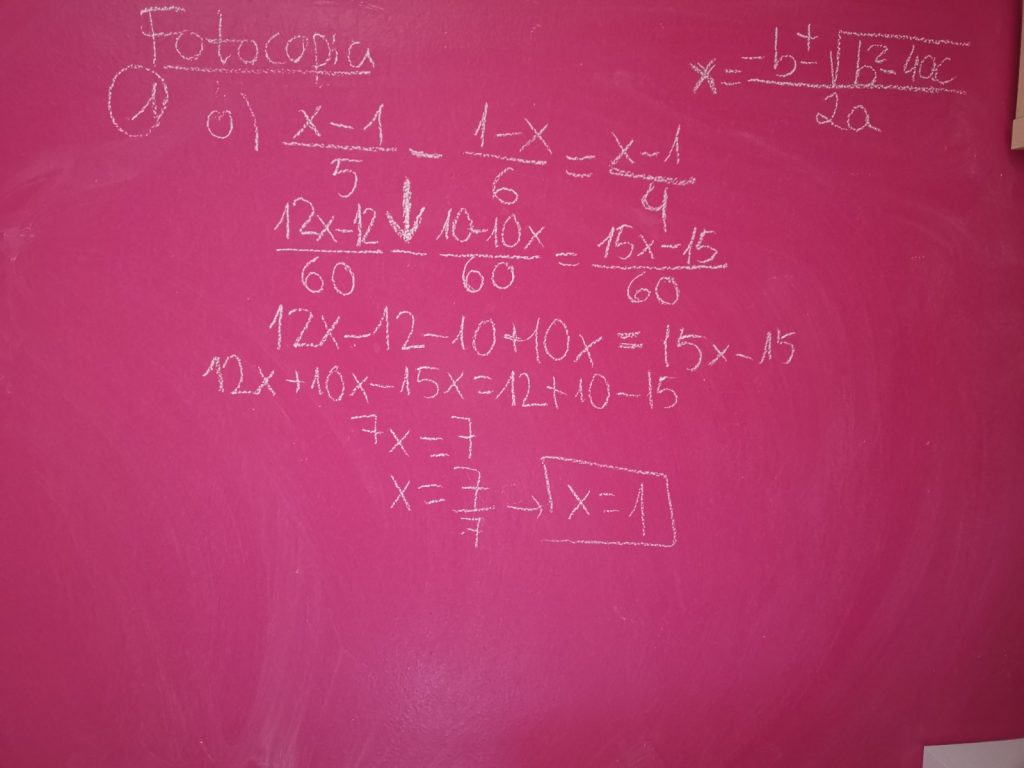 Fotocopia
x = (-b ± √(b² - 4ac)) / 2a
① a) (x-1)/5 - (1-x)/6 = (x-1)/4
↓
(12x-12)/60 - (10-10x)/60 = (15x-15)/60
12x-12-10+10x = 15x-15
12x+10x-15x=12+10-15
7x=7
x= 7/7 → x=1